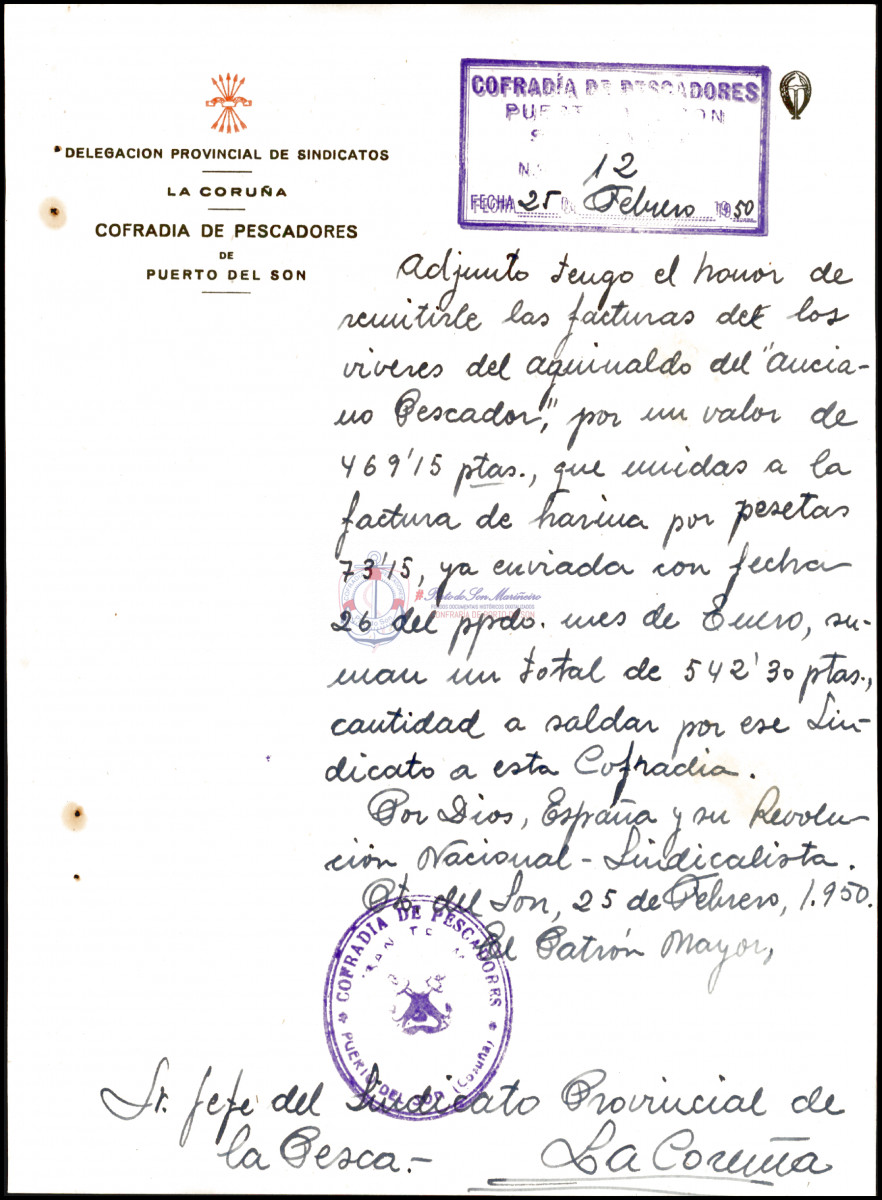 DELEGACION PROVINCIAL DE SINDICATOS
LA CORUÑA
COFRADIA DE PESCADORES
DE
PUERTO DEL SON
COFRADÍA DE PESCADORES
PUERTO SON
S
N.º 12
FECHA 25 DE Febrero 1950
Adjunto tengo el honor de
remitirle las facturas de los
viveres del aguinaldo del "Ancia-
no Pescador", por un valor de
469'15 ptas., que unidas a la
factura de harina por pesetas
73'15, ya enviada con fecha
26 del ppdo. mes de Enero, su-
man un total de 542'30 ptas.,
cantidad a saldar por ese Sin-
dicato a esta Cofradia.
Por Dios, España y su Revolu-
ción Nacional-Sindicalista.
Pto. del Son, 25 de Febrero, 1.950.
El Patrón Mayor,
COFRADIA DE PESCADORES
PUERTO DEL SON (Coruña)
Sr. Jefe del Sindicato Provincial de
la Pesca.-
La Coruña
#PortodoSonMariñeiro
FONDOS DOCUMENTAIS HISTÓRICOS DIGITALIZADOS
CONFRARÍA DE PORTO DO SON